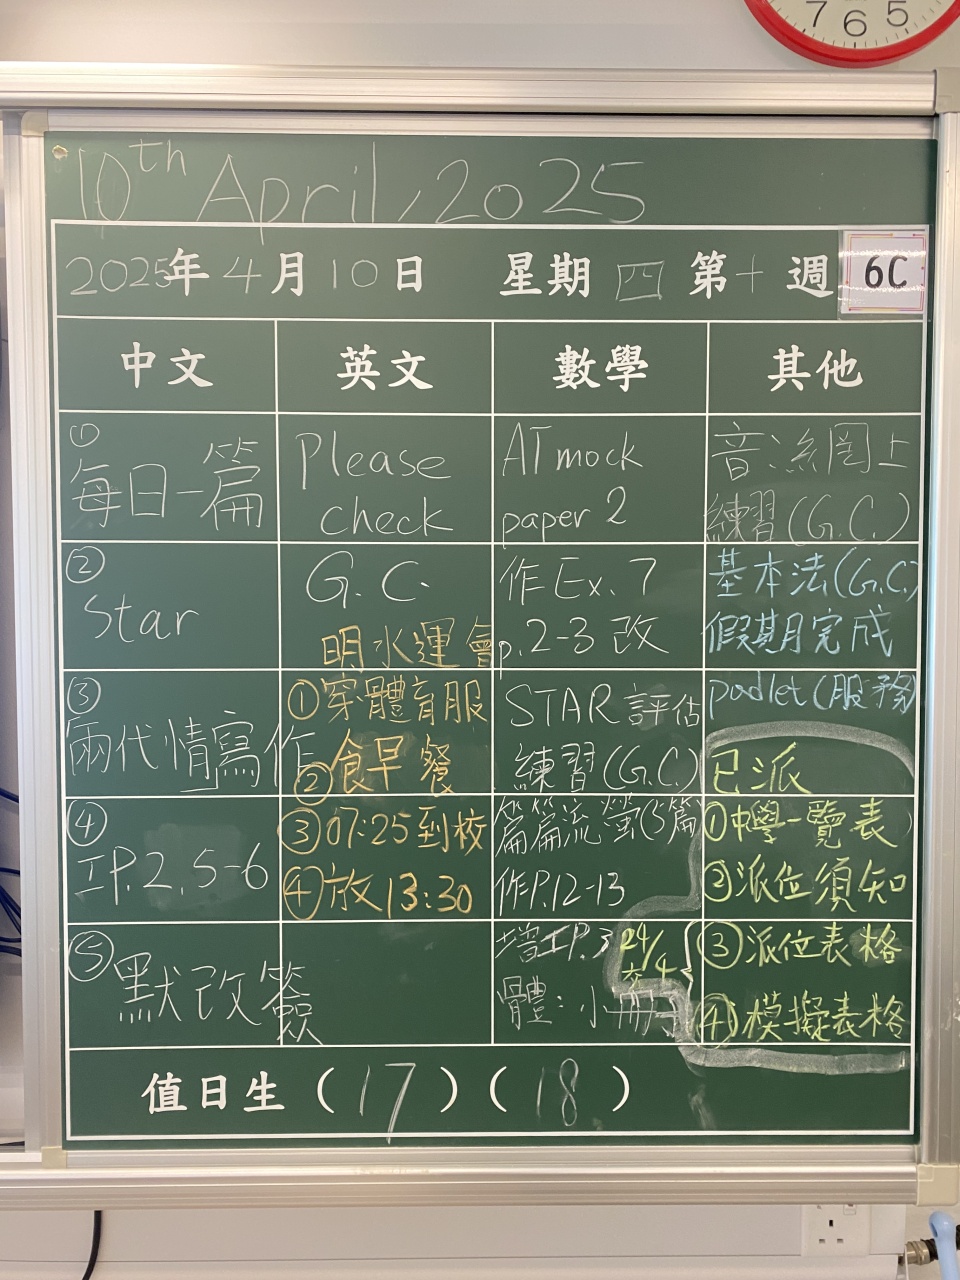 7 6 5
10th April, 2025
2025年4月10日 星期四 第十週 6C
中文 英文 數學 其他
①
每日一篇
②
Star
③
兩代情寫作
④
工P.2,5-6
⑤
默改簽
Please
check
G.C.
明水運會
①穿體育服
②食早餐
③07:25到校
④放13:30
AT mock
paper 2
作Ex.7
p.2-3改
STAR評估
練習(G.C.)
篇篇流螢(5篇)
作P.12-13
增工P.3
體:小冊子
24/4
交
音:網上
練習(G.C.)
基本法(G.C.)
假期完成
padlet(服務)
已派
①中學一覽表
②派位須知
③派位表格
④模擬表格
值日生(17)(18)